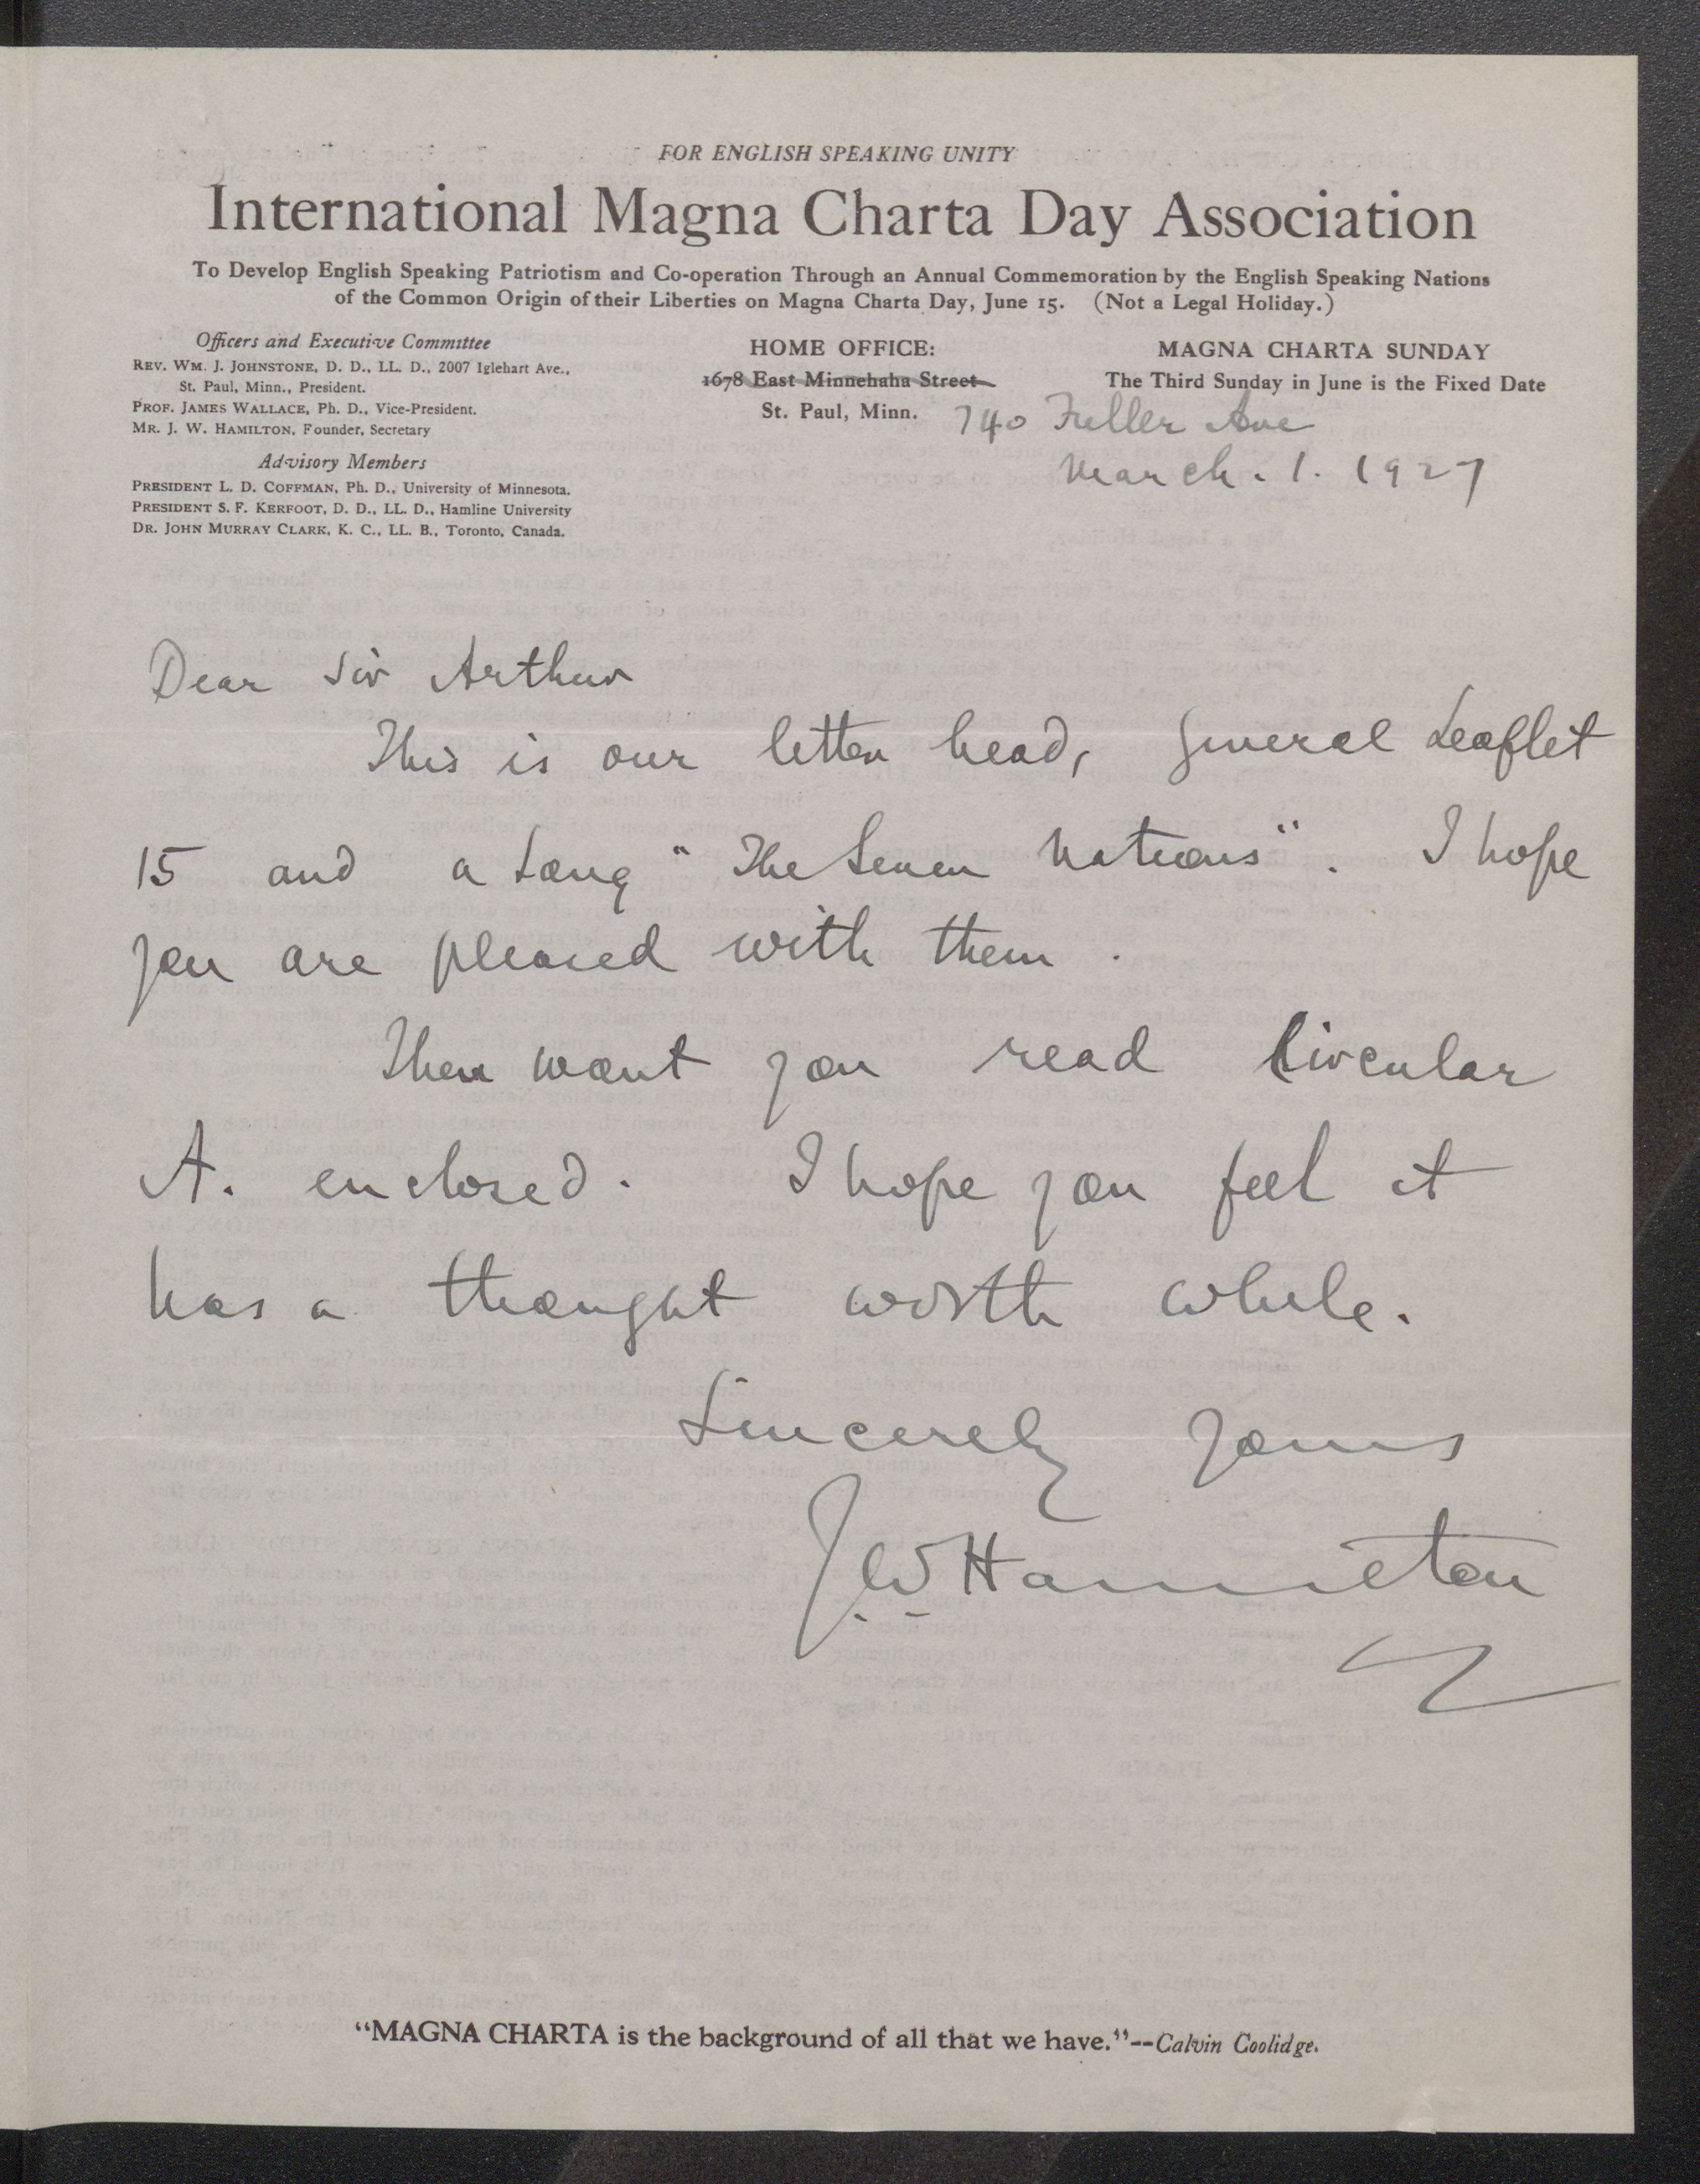 FOR ENGLISH SPEAKING UNITY
International Magna Charta Day Association
To Develop English Speaking Patriotism and Co-operation Through an Annual Commemoration by the English Speaking Nations
of the Common Origin of their Liberties on Magna Charta Day, June 15. (Not a Legal Holiday.)
Officers and Executive Committee
REV. WM. J. JOHNSTONE, D. D., LL. D., 2007 Iglehart Ave.,
St. Paul, Minn., President.
PROF. JAMES WALLACE, Ph. D., Vice-President.
MR. J. W. HAMILTON, Founder, Secretary
Advisory Members
PRESIDENT L. D. COFFMAN, Ph. D., University of Minnesota.
PRESIDENT S. F. KERFOOT, D. D., LL. D., Hamline University
DR. JOHN MURRAY CLARK, K. C., LL. B., Toronto, Canada.
HOME OFFICE:
1678 East Minnehaha Street
St. Paul, Minn.
MAGNA CHARTA SUNDAY
The Third Sunday in June is the Fixed Date
740 Fuller Ave
March. 1. 1927
Dear Sir Arthur
This is our letter head, General Leaflet
15 and a song "The Seven Nations". I hope
you are pleased with them.
Then wont you read Circular
A. enclosed. I hope you feel it
has a thought worth while.
Sincerely Yours
J. W. Hamilton
"MAGNA CHARTA is the background of all that we have."--Calvin Coolidge.